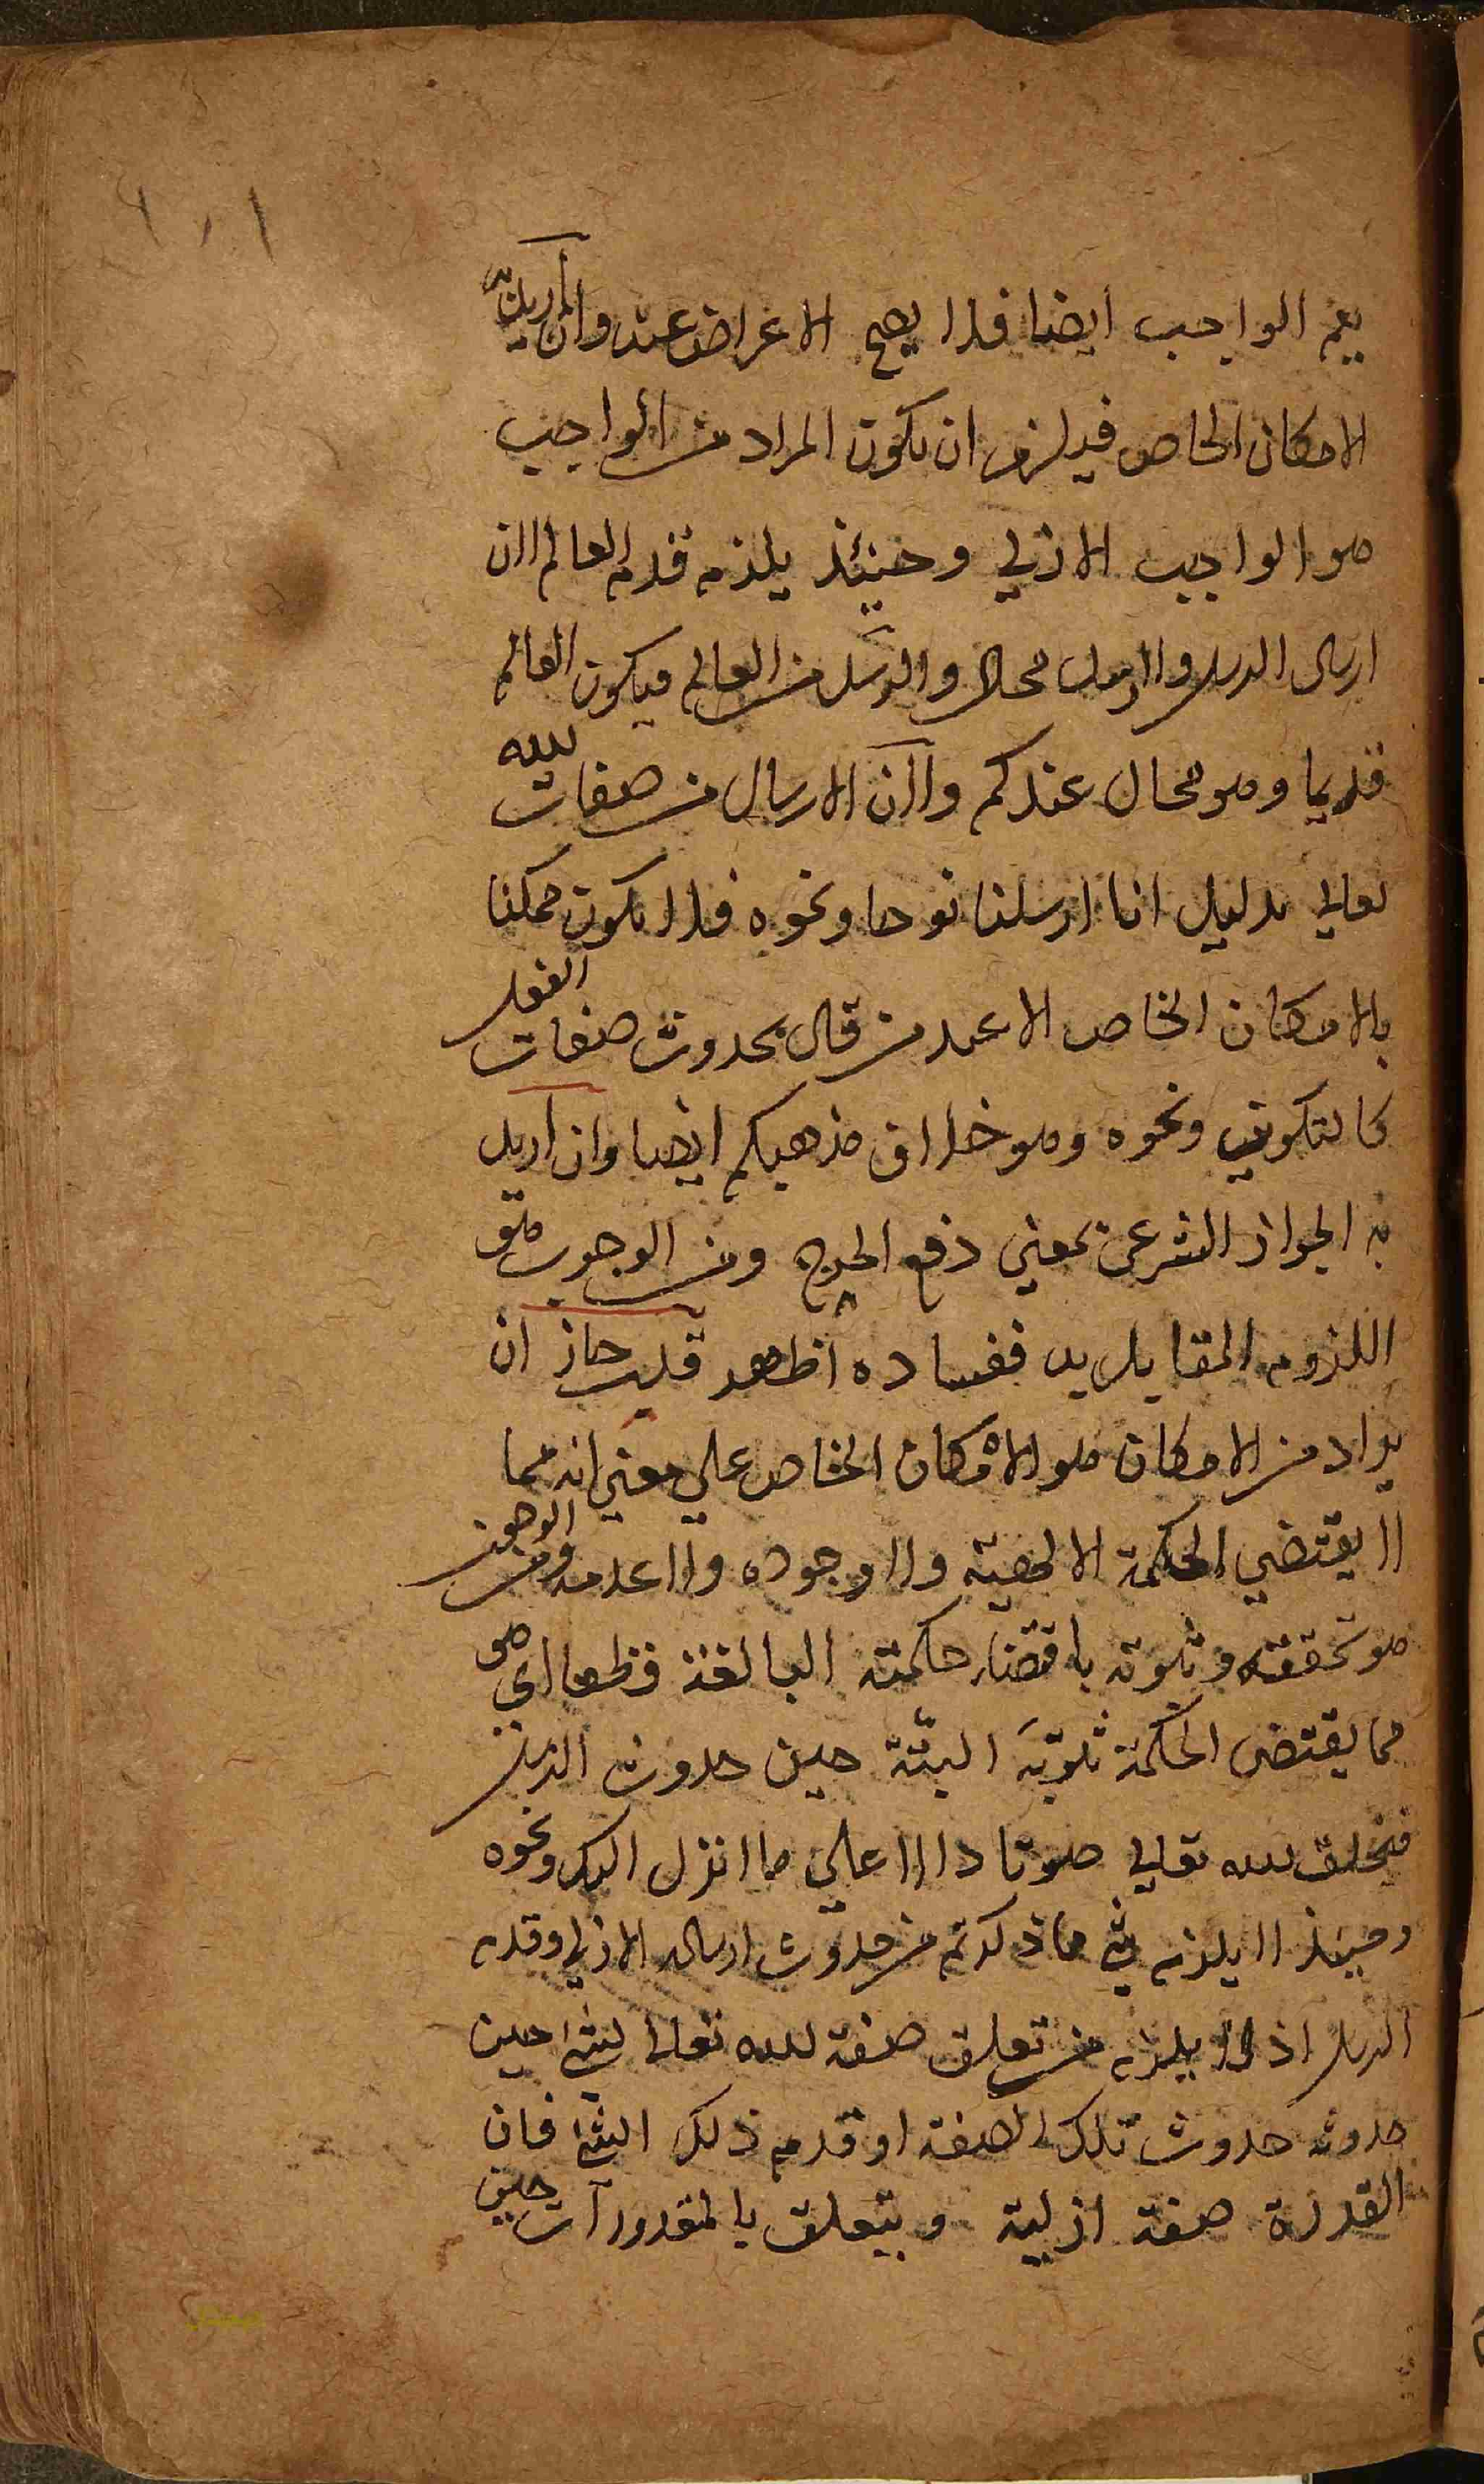 ١٠١
يعم الواجب ايضا فلا يصح الاعراض عنه وان اريد به
الامكان الخاص فيلزم ان يكون المراد من الواجب
هو الواجب الازلي وحينئذ يلزم قدم العالم لان
ارسال الرسل ولا رسل محال والرسل من العالم فيكون العالم
قديما وهو محال عندكم ولان الارسال من صفات الله
تعالى بدليل انا ارسلنا نوحا ونحوه فلا يكون ممكنا
بالامكان الخاص الا عند من قال بحدوث صفات الفعل
كالتكوين ونحوه وهو خلاف مذهبكم ايضا وان اريد
به الجواز الشرعي بمعني دفع الحرج ومن الوجوب هو
اللزوم المقابل به ففساده اظهر قلت جاز ان
يراد من الامكان هو الامكان الخاص علي معني انه مما
لا يقتضي الحكمة الالهية ولا وجوده ولا عدمه ومن الوجوب
هو تحققه وثبوته باقتضاء حكمته البالغة قطعا اي هو
مما يقتضى الحكمة ثبوته البتة حين حدوث الرسل
فيخلق الله تعالي صوتا دالا علي ما انزل اليك ونحوه
وحينئذ لا يلزم شئ مما ذكرتم من حدوث ارساله الازلي وقدم
الرسل اذ لا يلزم من تعلق صفة الله تعالى بشئ حين
حدوثه حدوث تلك الصفة او قدم ذلك الشئ فان
القدرة صفة ازلية ويتعلق بالمقدورات حين